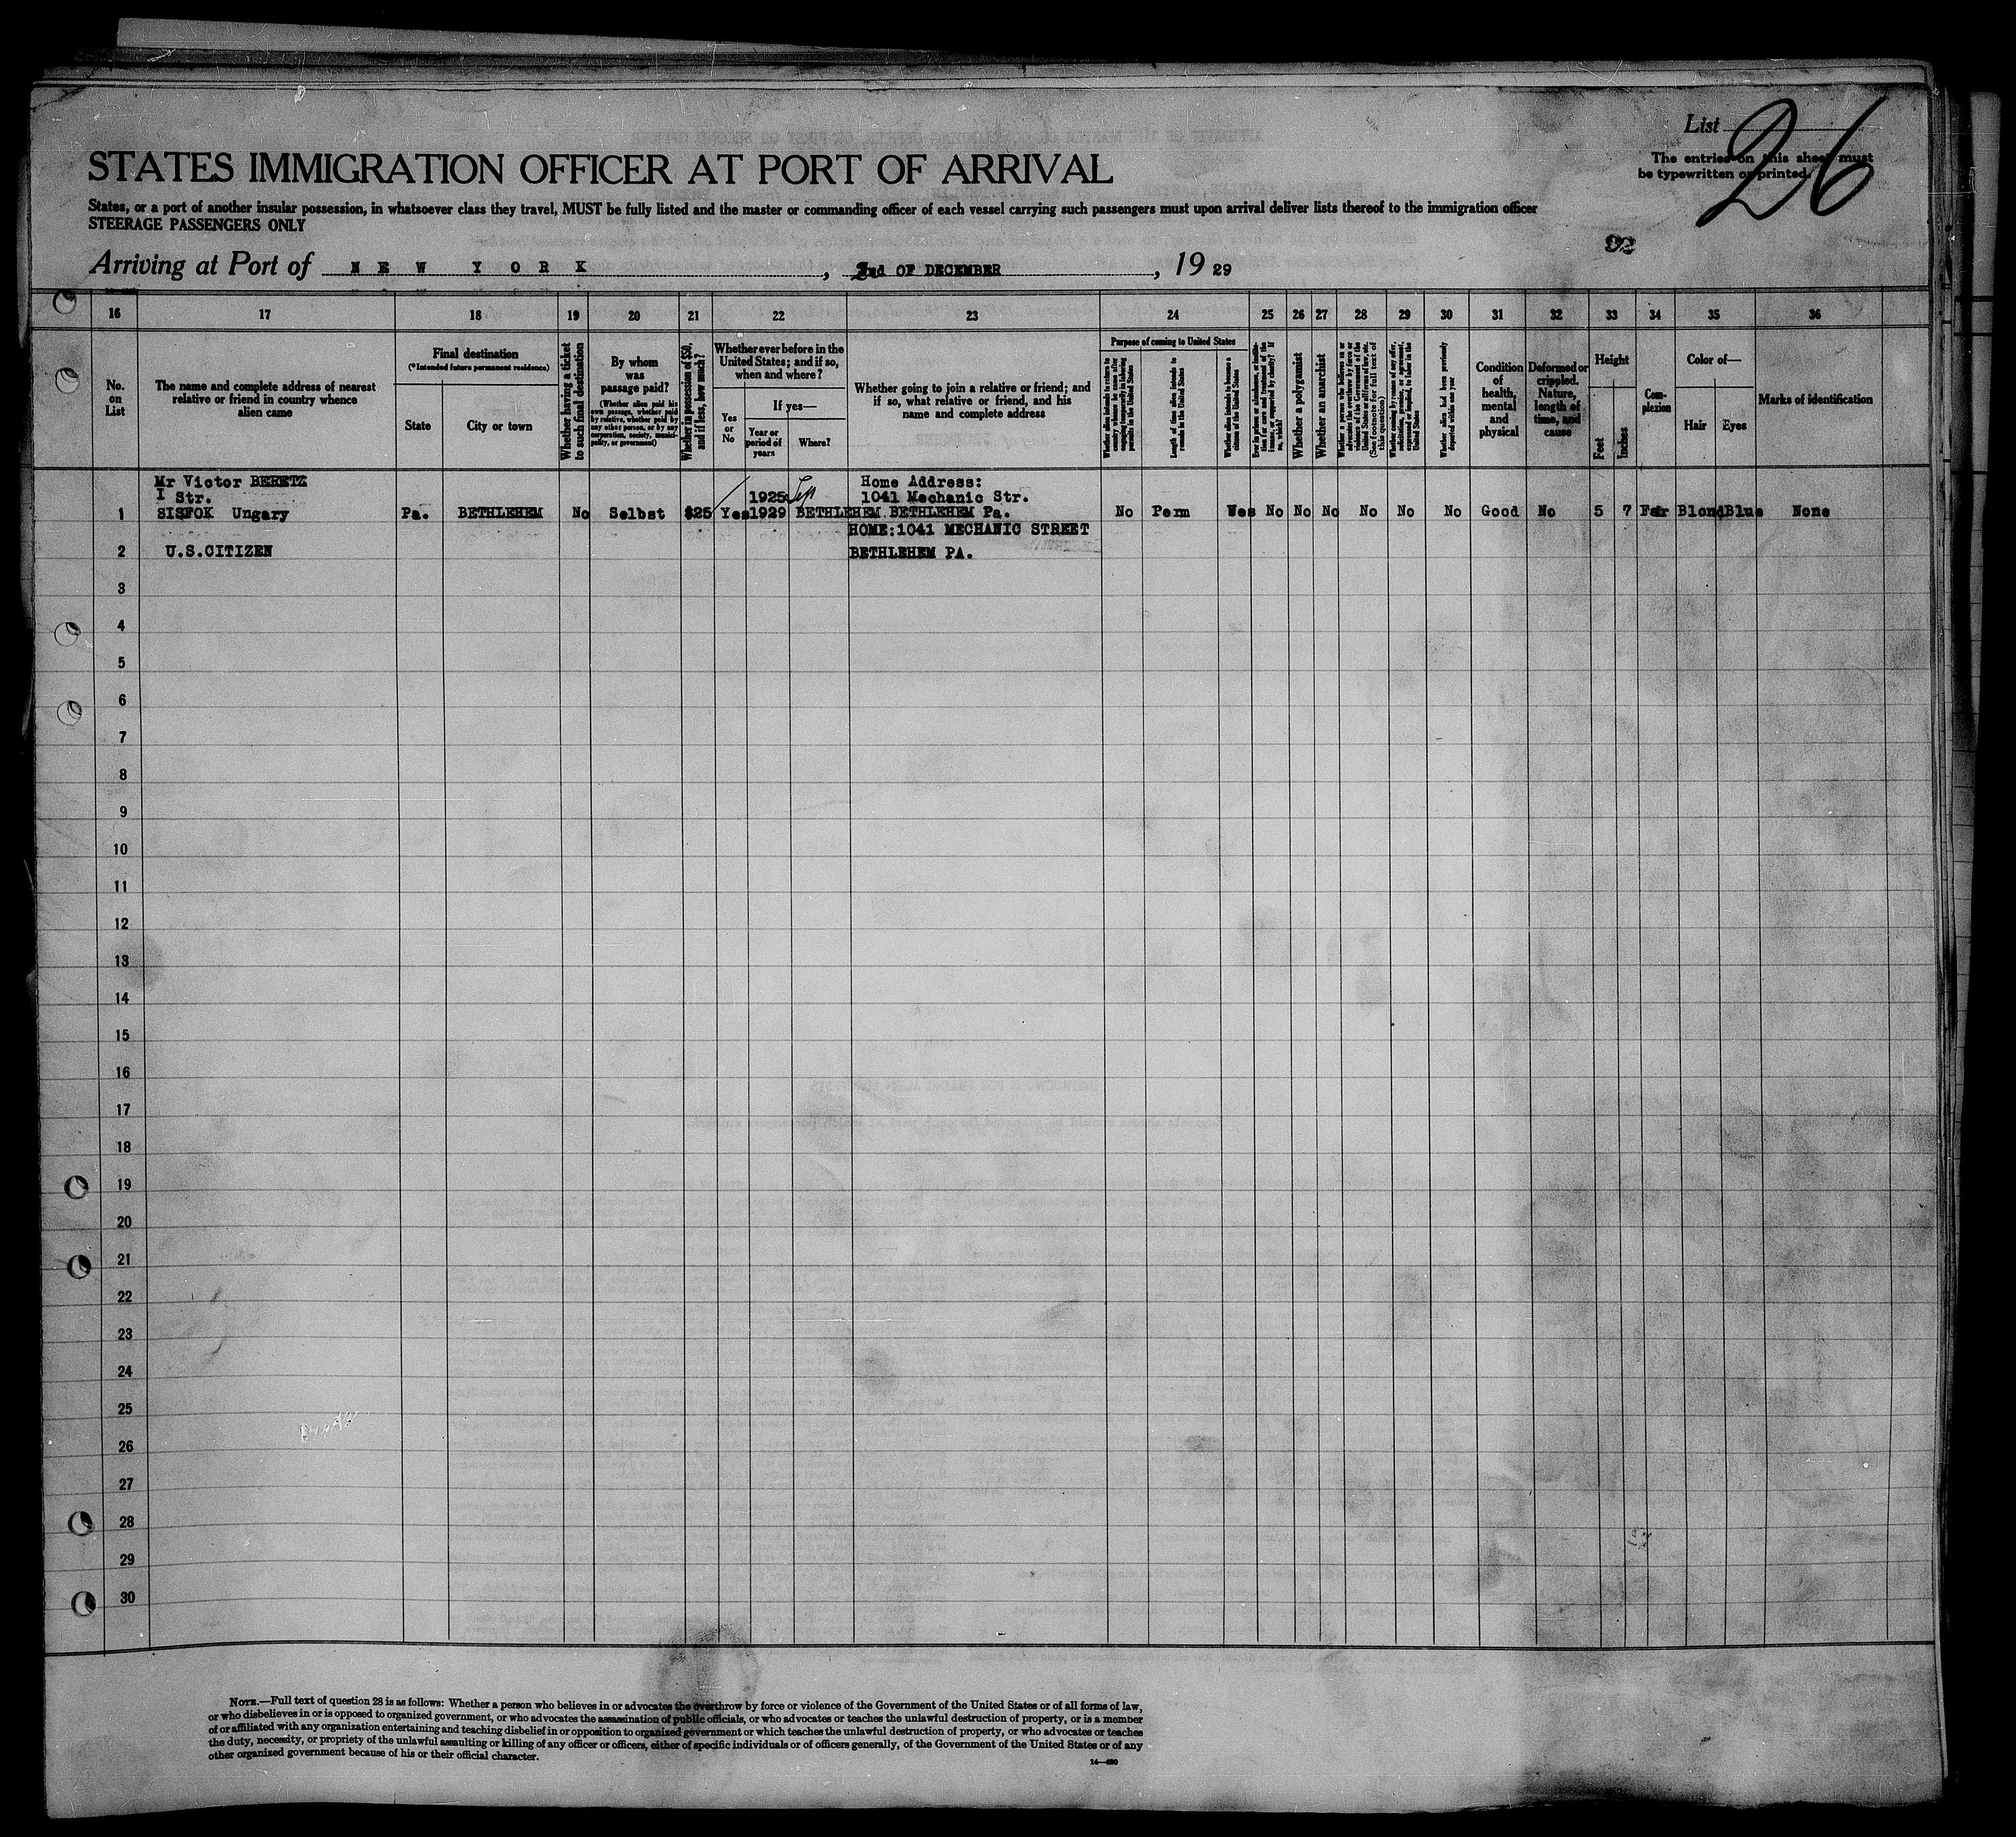 List 26
The entries on this sheet must
be typewritten or printed.
STATES IMMIGRATION OFFICER AT PORT OF ARRIVAL
States, or a port of another insular possession, in whatsoever class they travel, MUST be fully listed and the master or commanding officer of each vessel carrying such passengers must upon arrival deliver lists thereof to the immigration officer
STEERAGE PASSENGERS ONLY
92
Arriving at Port of NEW YORK, 2nd OF DECEMBER, 19 29
16 17 18 19 20 21 22 23 24 25 26 27 28 29 30 31 32 33 34 35 36
No.
on
List
The name and complete address of nearest
relative or friend in country whence
alien came
Final destination
(*Intended future permanent residence)
State
City or town
Whether having a ticket
to such final destination
By whom
was
passage paid?
(Whether alien paid his
own passage, whether paid
by relative, whether paid by
any other person, or by any
corporation, society, munici-
pality, or government)
Whether in possession of $50,
and if less, how much?
Whether ever before in the
United States; and if so,
when and where?
Yes
or
No
If yes—
Year or
period of
years
Where?
Whether going to join a relative or friend; and
if so, what relative or friend, and his
name and complete address
Purpose of coming to United States
Whether alien intends to return to
country whence he came after
engaging temporarily in laboring
pursuits in the United States
Length of time alien intends to
remain in the United States
Whether alien intends to become a
citizen of the United States
Ever in prison or almshouse, or institu-
tion for care and treatment of the
insane, or supported by charity? If
so, which?
Whether a polygamist
Whether an anarchist
(See footnote for full text of
this question)
Whether coming by reason of any offer,
solicitation, promise, or agreement,
expressed or implied, to labor in the
United States
Whether alien had been previously
deported within one year
Condition
of
health,
mental
and
physical
Deformed or
crippled.
Nature,
length of
time, and
cause
Height
Feet
Inches
Com-
plexion
Color of—
Hair
Eyes
Marks of identification
Mr Victor BERETZ
I Str.
1925 Sept
Home Address:
1041 Mechanic Str.
1 SISFOK Ungary Pa. BETHLEHEM No Selbst $25 Yes 1929 BETHLEHEM BETHLEHEM Pa. No Perm Yes No No No No No No Good No 5 7 Fair Blond Blue None
HOME:1041 MECHANIC STREET
2 U.S.CITIZEN BETHLEHEM PA.
3
4
5
6
7
8
9
10
11
12
13
14
15
16
17
18
19
20
21
22
23
24
25
26
27
28
29
30
NOTE.—Full text of question 28 is as follows: Whether a person who believes in or advocates the overthrow by force or violence of the Government of the United States or of all forms of law,
or who disbelieves in or is opposed to organized government, or who advocates the assassination of public officials, or who advocates or teaches the unlawful destruction of property, or is a member
of or affiliated with any organization entertaining and teaching disbelief in or opposition to organized government or which teaches the unlawful destruction of property, or who advocates or teaches
the duty, necessity, or propriety of the unlawful assaulting or killing of any officer or officers, either of specific individuals or of officers generally, of the Government of the United States or of any
other organized government because of his or their official character.
14—480